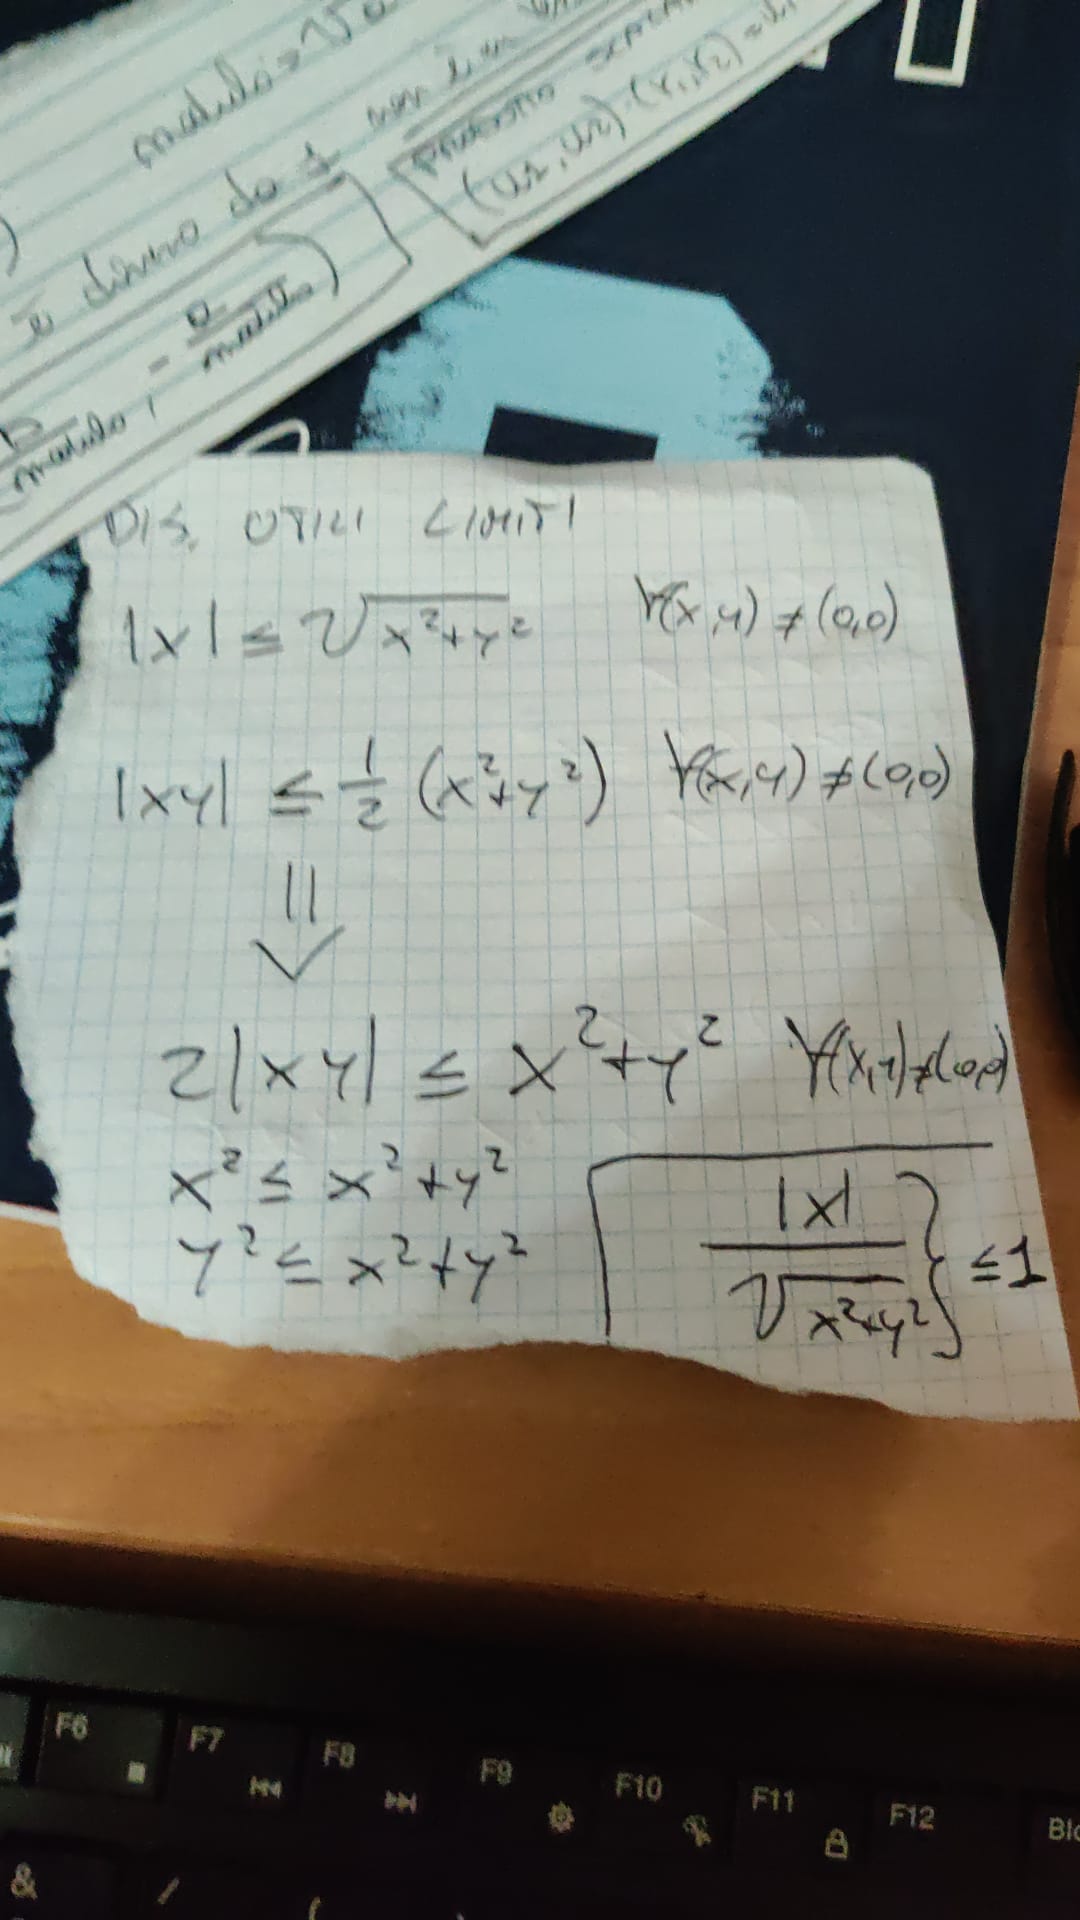 modulo = √a
è diverso da 1 non è un
b/modulo, - a/modulo)
PRODOTTO SCALA
(u1, u2)·(v1, v2) = u1
DIS. UTILI LIMITI
|x| ≤ √x²+y² ∀(x,y) ≠ (0,0)
|xy| ≤ 1/2 (x²+y²) ∀(x,y) ≠ (0,0)
⇓
2|xy| ≤ x²+y² ∀(x,y) ≠ (0,0)
x² ≤ x²+y²
y² ≤ x²+y²
|x| / √x²+y² } ≤ 1
F6 F7 F8 F9 F10 F11 F12 Blo
& / (